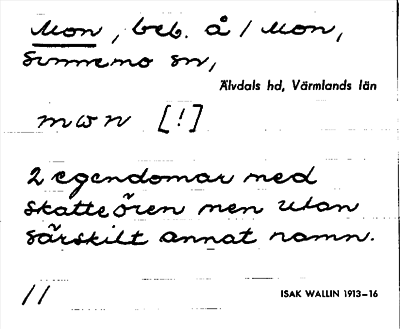 Mon, beb. å / Mon,
Sunnemo sn,
Älvdals hd, Värmlands län
mwn [!]
2 egendomar med
skatteören men utan
särskilt annat namn.
11
ISAK WALLIN 1913–16